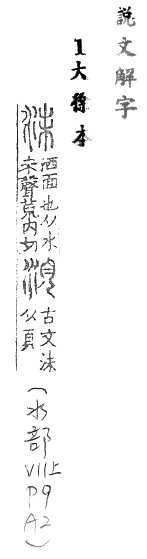 説文解字
1大徐本
沬 洒面也从水
未聲荒内切
湏 古文沬
从頁
(水部VII上P9A2)